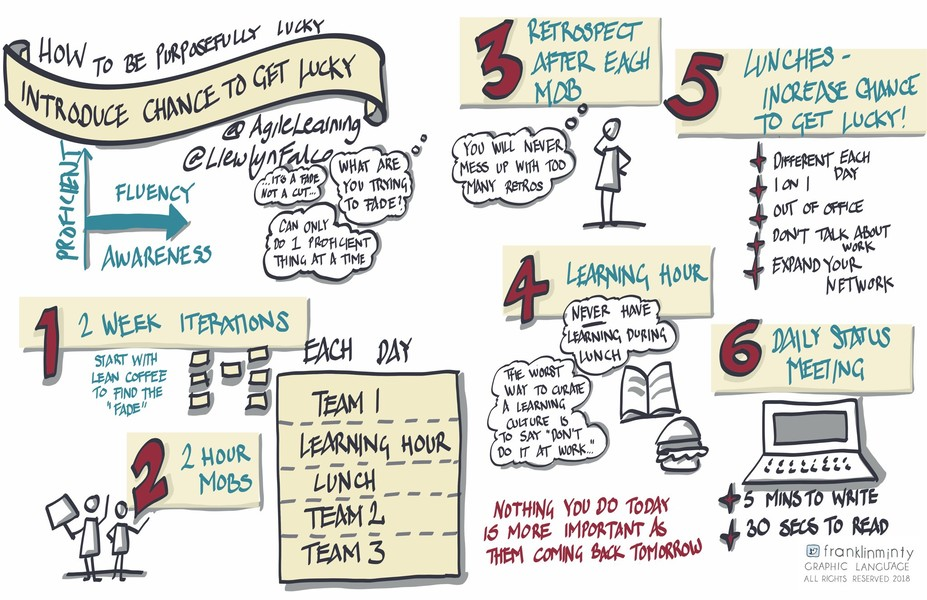 HOW TO BE PURPOSEFULLY LUCKY
INTRODUCE CHANCE TO GET LUCKY
@ AgileLearning
@LlewlynFalco
PROFICIENT
FLUENCY
AWARENESS
...IT'S A FADE
NOT A CUT...
WHAT ARE
YOU TRYING
TO FADE?
CAN ONLY
DO 1 PROFICIENT
THING AT A TIME
1 2 WEEK ITERATIONS
START WITH
LEAN COFFEE
TO FIND THE
"FADE"
2 2 HOUR
MOBS
EACH DAY
TEAM 1
LEARNING HOUR
LUNCH
TEAM 2
TEAM 3
3 RETROSPECT
AFTER EACH
MOB
YOU WILL NEVER
MESS UP WITH TOO
MANY RETROS
4 LEARNING HOUR
NEVER HAVE
LEARNING DURING
LUNCH
THE WORST
WAY TO CURATE
A LEARNING
CULTURE IS
TO SAY "DON'T
DO IT AT WORK..."
NOTHING YOU DO TODAY
IS MORE IMPORTANT AS
THEM COMING BACK TOMORROW
5 LUNCHES -
INCREASE CHANCE
TO GET LUCKY!
DIFFERENT EACH
DAY
1 ON 1
OUT OF OFFICE
DON'T TALK ABOUT
WORK
EXPAND YOUR
NETWORK
6 DAILY STATUS
MEETING
5 MINS TO WRITE
30 SECS TO READ
franklinminty
GRAPHIC LANGUAGE
ALL RIGHTS RESERVED 2018